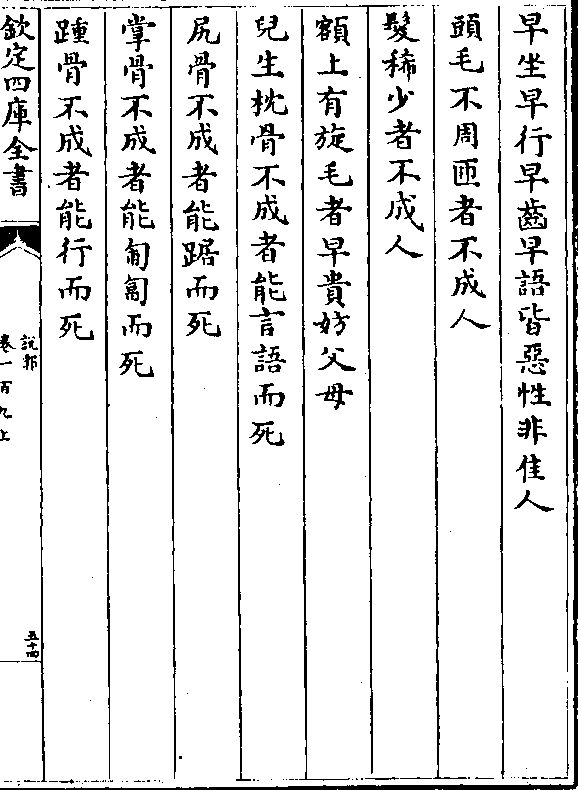 早坐早行早齒早語皆惡性非佳人
頭毛不周匝者不成人
髮稀少者不成人
額上有旋毛者早貴妨父母
兒生枕骨不成者能言語而死
尻骨不成者能踞而死
掌骨不成者能匍匐而死
踵骨不成者能行而死
欽定四庫全書
說郛
卷一百九上
五十四